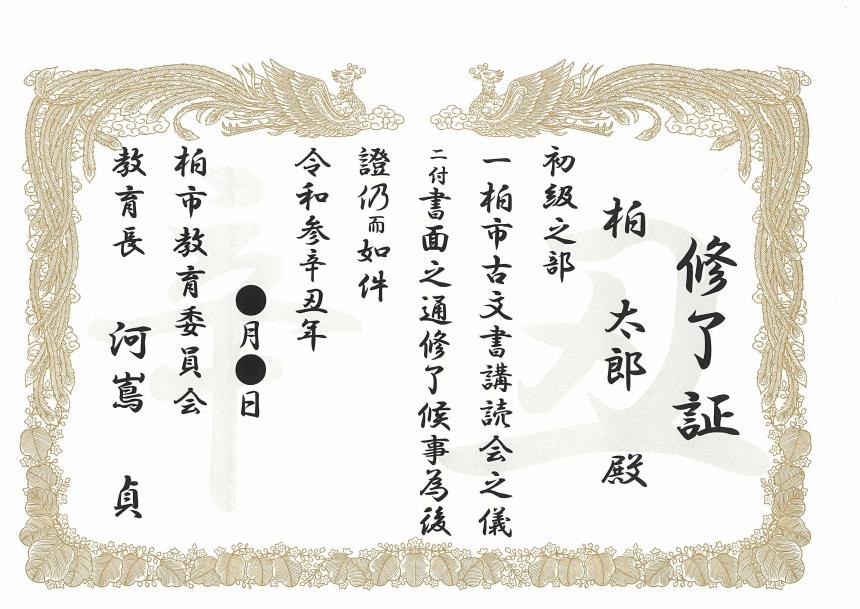 修了証
柏 太郎 殿
初級之部
一柏市古文書講読会之儀
二付書面之通修了候事為後
證仍而如件
令和参辛丑年
●月●日
柏市教育委員会
教育長 河嶌 貞
辛丑